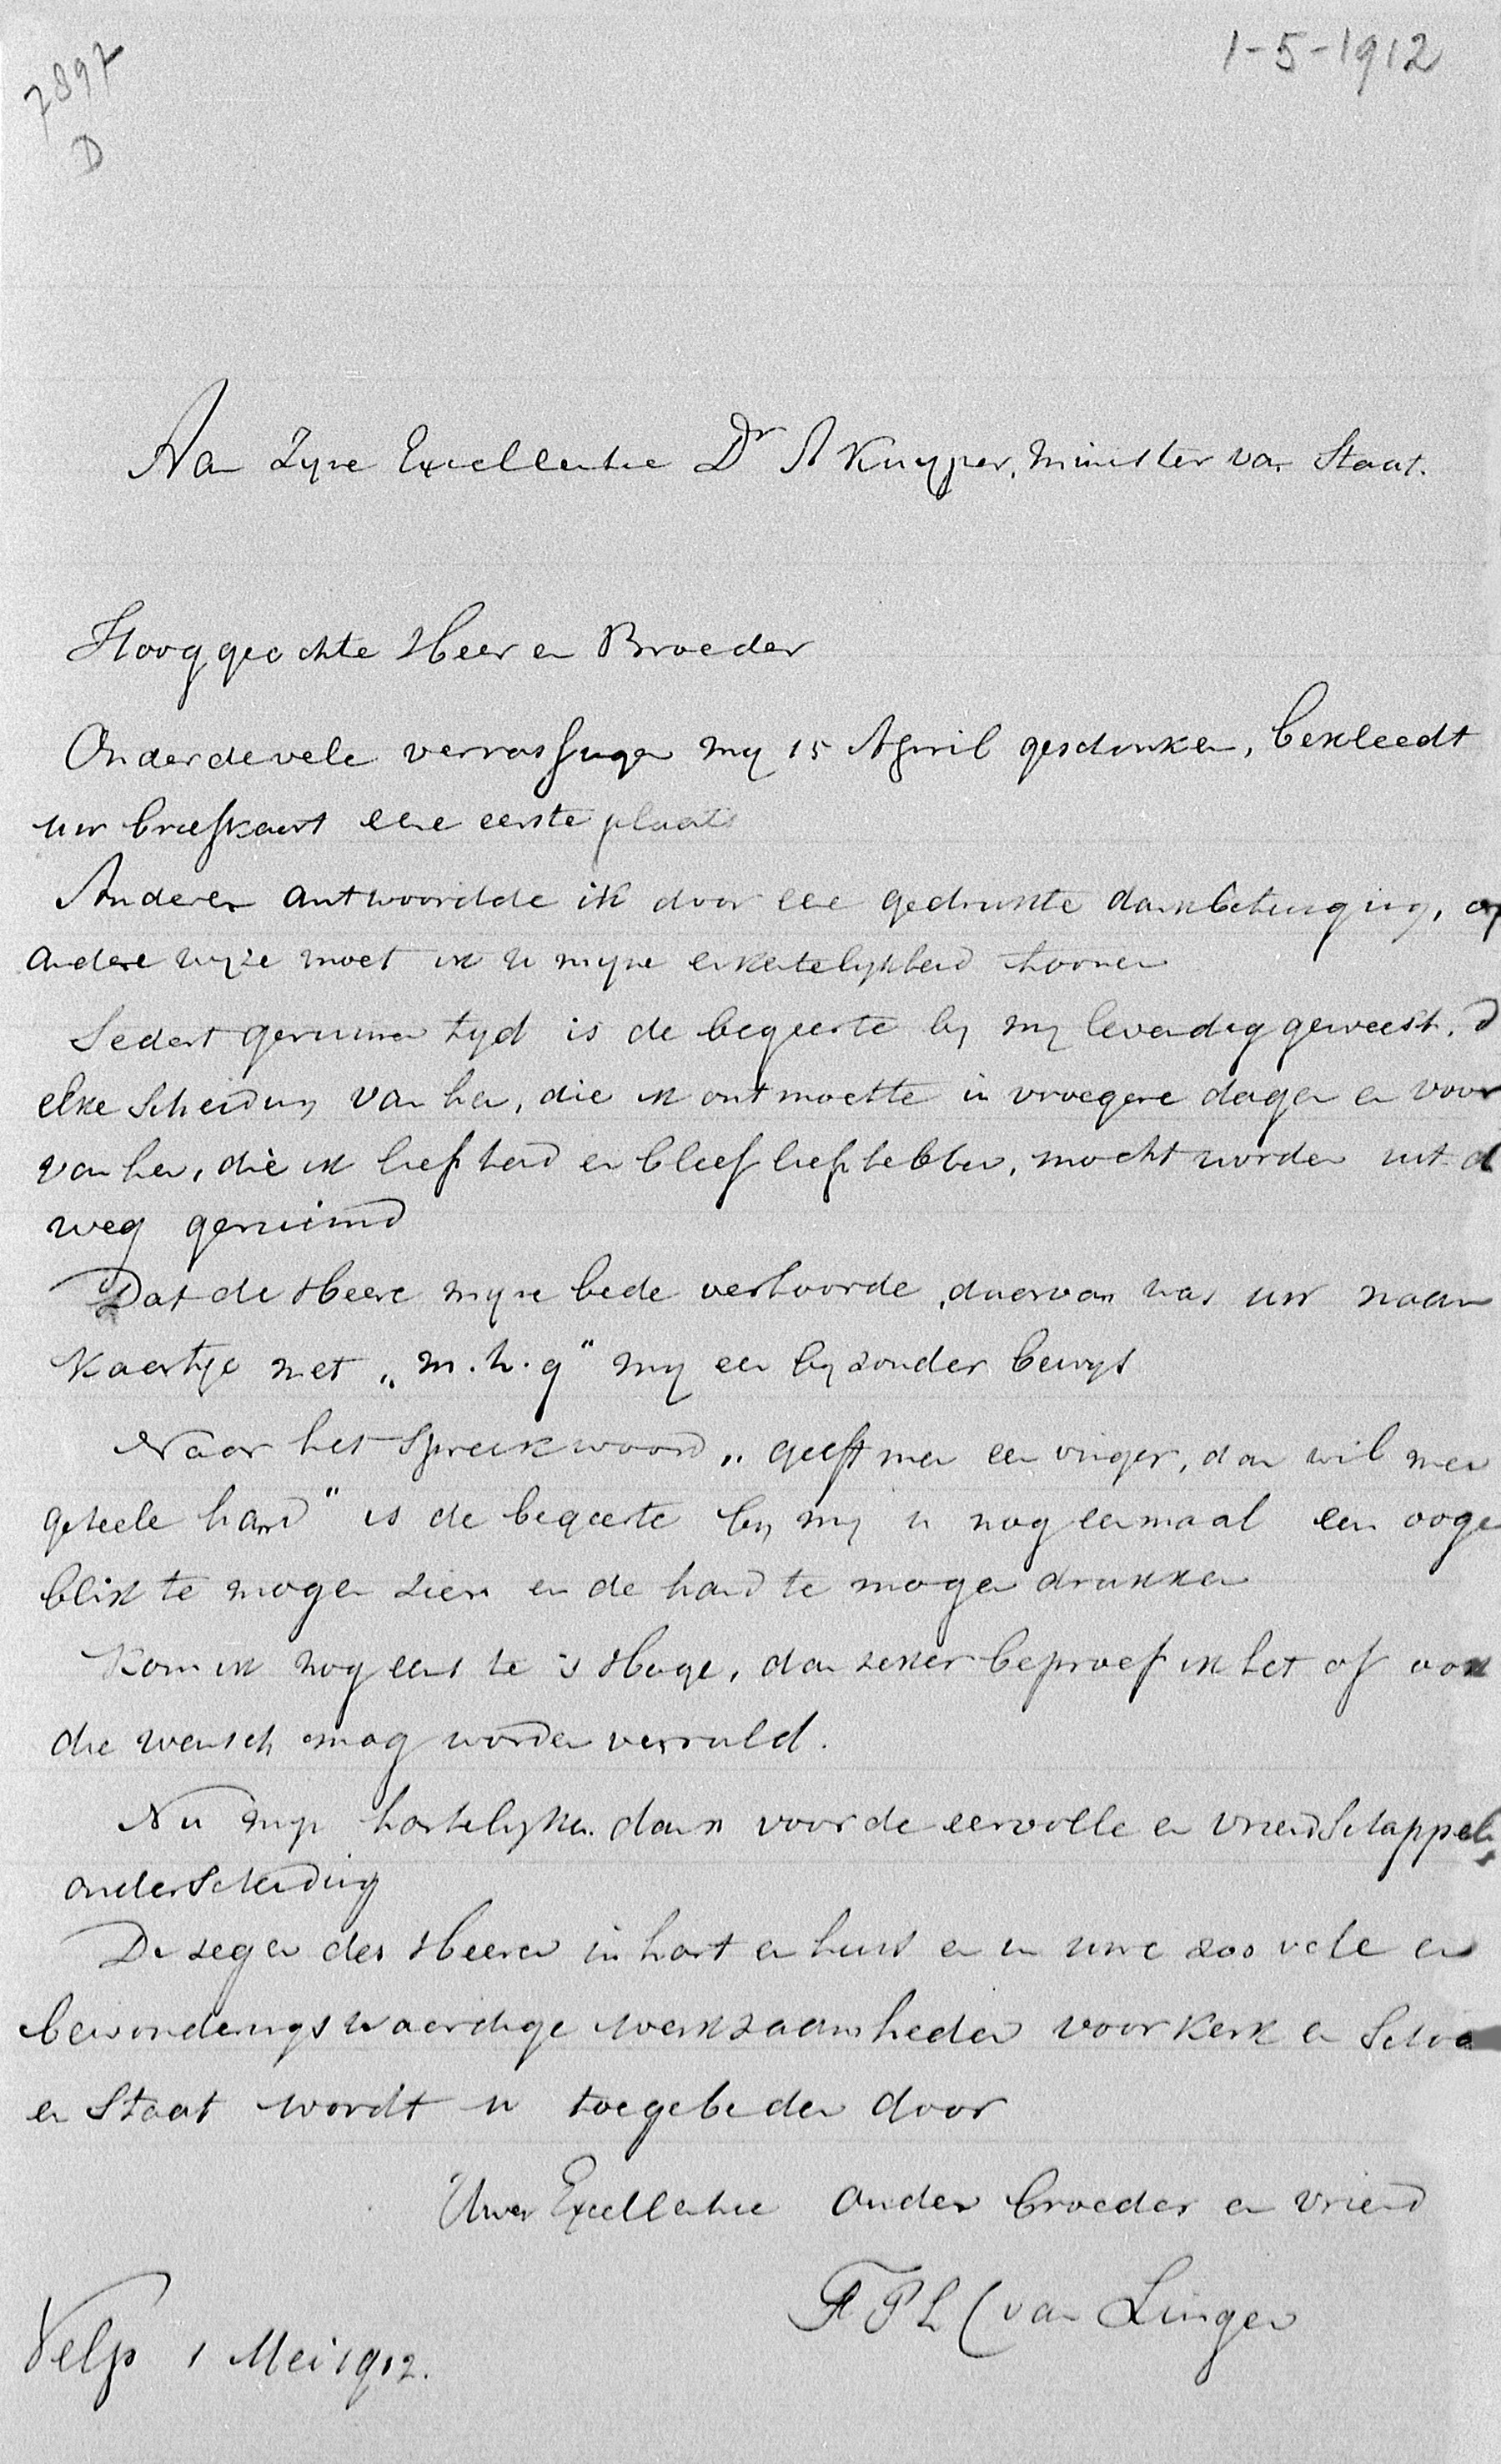 7897
D
1-5-1912
Aan Zyne Excellentie Dr A Kuyper, Minister van Staat.
Hooggeachte Heer en Broeder
Onder de vele verrassingen my 15 April geschonken, bekleedt
uw briefkaart eene eerste plaats
Anderen antwoordde ik door eene gedrukte dankbetuiging, op
andere wyze moet ik U myne erkentelykheid toonen
Sedert geruimen tyd is de begeerte by my levendig geweest, d
elke scheiding van hen, die ik ontmoette in vroegere dagen en voor
van hen, die ik lief had en bleef liefhebben, mocht worden uit d
weg geruimd
Dat de Heere myne bede verhoorde, daarvan was uw naam
kaartje met „m.h.g" my een byzonder bewys
Naar het spreekwoord „geeft men een vinger, dan wil men
geheele hand" is de begeerte by my u nog eenmaal een ooge
blik te mogen zien en de hand te mogen drukken
Kom ik nog eens te 's Hage, dan zeker beproef ik het of ook
die wensch mag worden vervuld.
Nu myn hartelyken dank voor de eervolle en vriendschappel
onderscheiding
De zegen des Heeren in hart en huis en in uwe zoo vele en
bewonderingswaardige werkzaamheden voor Kerk en Schoo
en Staat wordt u toegebeden door
Uwer Excellentie ouden broeder en vriend
F P L C van Lingen
Velp 1 Mei 1912.